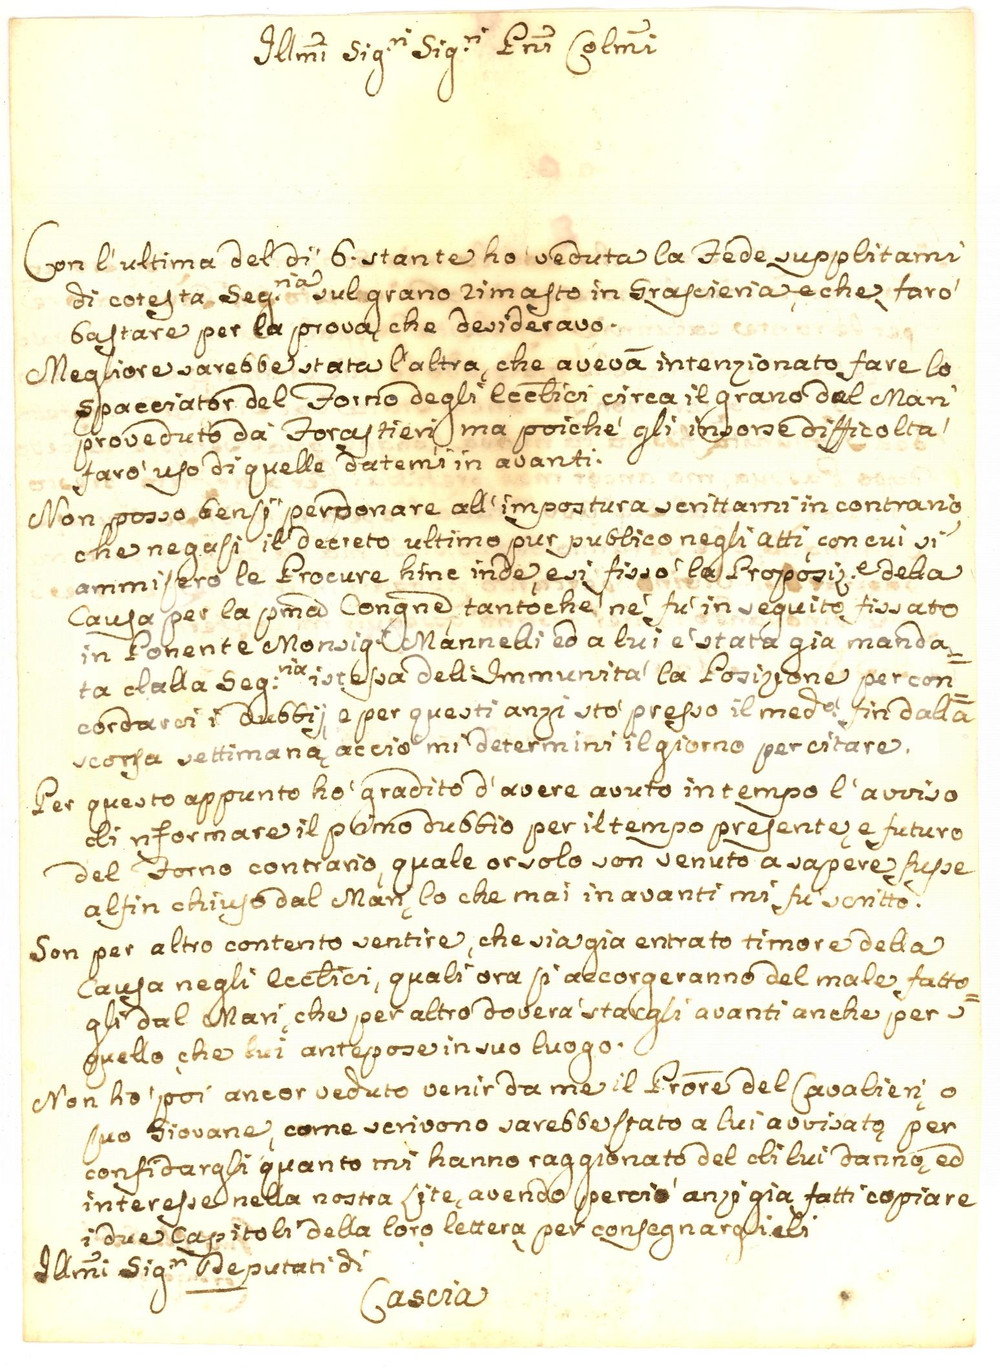 Illmi Sig.ri Sig.ri Pni Colmi
Con l'ultima del di 6. stante ho veduta la Fede supplitami
di cotesta Seg.ria sul grano rimasto in Grascieria, e che farò
bastare per la prova, che desideravo.
Megliore sarebbe stata l'altra, che avevà intenzionato fare lo
Spacciator del Forno degli Ecctici circa il grano del Mari
proveduto da Forastieri, ma poiche gli insorse difficoltà
farò uso di quelle datemi in avanti.
Non posso bensi perdonare all'impostura scrittami in contrario
che negasi il decreto ultimo pur publico negli Atti, con cui si
ammisero le Procure hinc inde, e si fissò la Proposiz.e della
Causa per la pma Congne, tantoche ne fù in seguito fissato
in Ponente Monsig.r Mannelli ed a lui è stata gia manda=
ta dalla Seg.ria istessa dell'Immunità la Posizione per con=
cordarsi i dubbij, e per questi anzi stò presso il med.o fin dalla
scorsa settimana, acciò mi determini il giorno per citare.
Per questo appunto hò gradito d'avere avuto in tempo l'avviso
di riformare il primo dubbio per il tempo presente, e futuro
del Forno contrario, quale or solo son venuto a sapere fusse
alfin chiuso dal Mari, lo che mai in avanti mi fù scritto.
Son per altro contento sentire, che sia gia entrato timore della
Causa negli Ecctici, quali ora si accorgeranno del male fatto=
gli dal Mari, che per altro doverà stargli avanti anche per
quello che lui antepose in suo luogo.
Non hò poi ancor veduto venir da me il Prore del Cavalieri, o
suo Giovane, come scrivono sarebbe stato a lui avvisato per
confidargli quanto mi hanno raggionato del di lui danno, ed
interesse nella nostra Lite, avendo perciò anzi già fatti copiare
i due Capitoli della loro lettera per consegnarglieli
Illmi Sig.ri Deputati di
Cascia